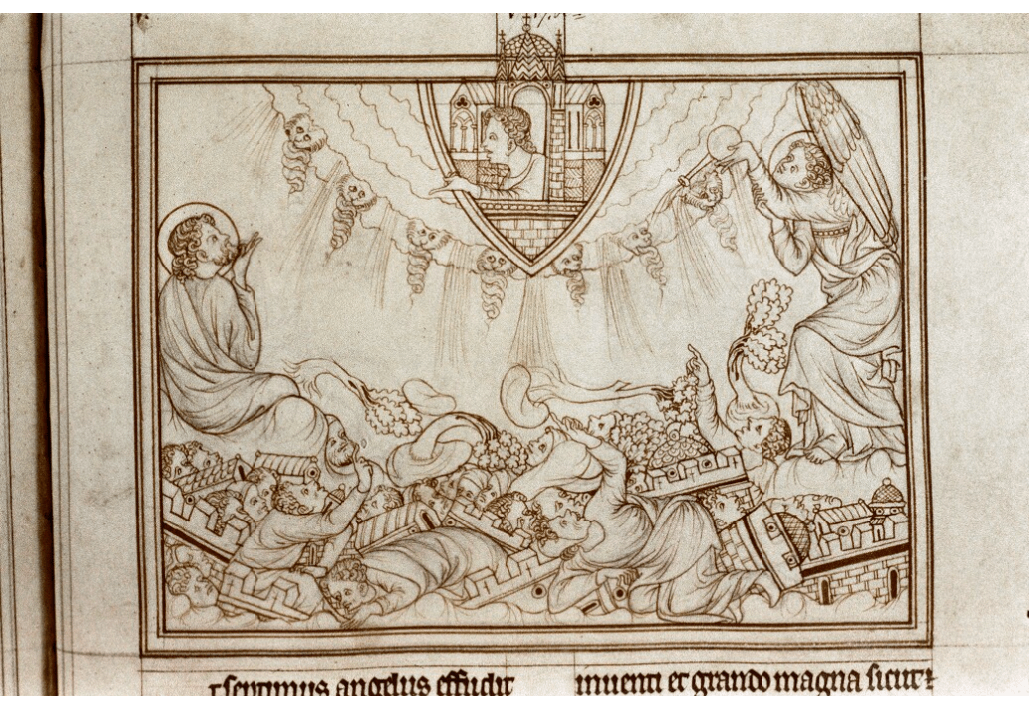 t septimus angelus effudit
inuenti et grando magna sicut